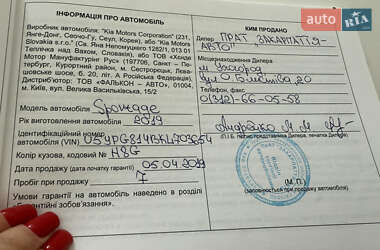 ІНФОРМАЦІЯ ПРО АВТОМОБІЛЬ
Виробник автомобіля: "Kia Motors Corporation" (231,
Янге-Донг, Сеочу-Гу, Сеул, Корея), або "Kia Motors
Slovakia s.r.o." (Св. Яна Непомуцкего 1282/1, 013 01
Тепличка над Вагом, Словакія), або ТОВ «Хенде
Мотор Мануфактуринг Рус» (197706, Санкт –
Петербург, Курортний район, м. Сестрорецьк, Лева-
шовське шосе, б. 20, літ. А, Російська Федерація)
Дистриб'ютор: ТОВ «ФАЛЬКОН – АВТО», 03011,
м. Київ, вул. Велика Васильківська, 15/2
Модель автомобіля Sportage
Рік виготовлення автомобіля 2019
Ідентифікаційний номер
автомобіля (VIN)
Колір кузова, кодовий № H8G
Дата продажу (дата початку гарантії) 05.04.2019
Пробіг при продажу 7
Умови гарантії на автомобіль наведено в розділі
«Гарантійні зобов'язання».
КИМ ПРОДАНО
Дилер ПРАТ ЗАКАРПАТТЯ-
АВТО
Місцезнаходження Дилера
м Ужгород
20
Телефон, факс
0(312)-66-05-58
(П.І.Б. і підпис представника Дилера, печатка Дилера)
(М.П.)
(заповнюється при продажу автомобіля)
AUTO
RIA